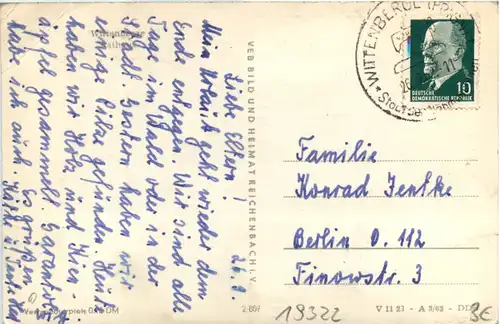 Wittenberge
Rathaus
Liebe Eltern! 26.9.
Mein Urlaub geht wieder dem
Ende entgegen. Wir sind alle
Tage im Wald oder in der
Stadt. Gestern haben wir
einige Pilze gefunden. Heute
haben wir Holz und Kien-
äpfel gesammelt. Garantiert
habe ich auch. Es grüßen
Käthe u. Tante
VEB BILD UND HEIMAT REICHENBACH I. V.
Verbraucherpreis 0,20 DM
WITTENBERGE
DEUTSCHE
DEMOKRATISCHE REPUBLIK 10
Familie
Konrad Jentke
Berlin O. 112
Finowstr. 3
19322
V 11 23 - A 3/63 - DDR